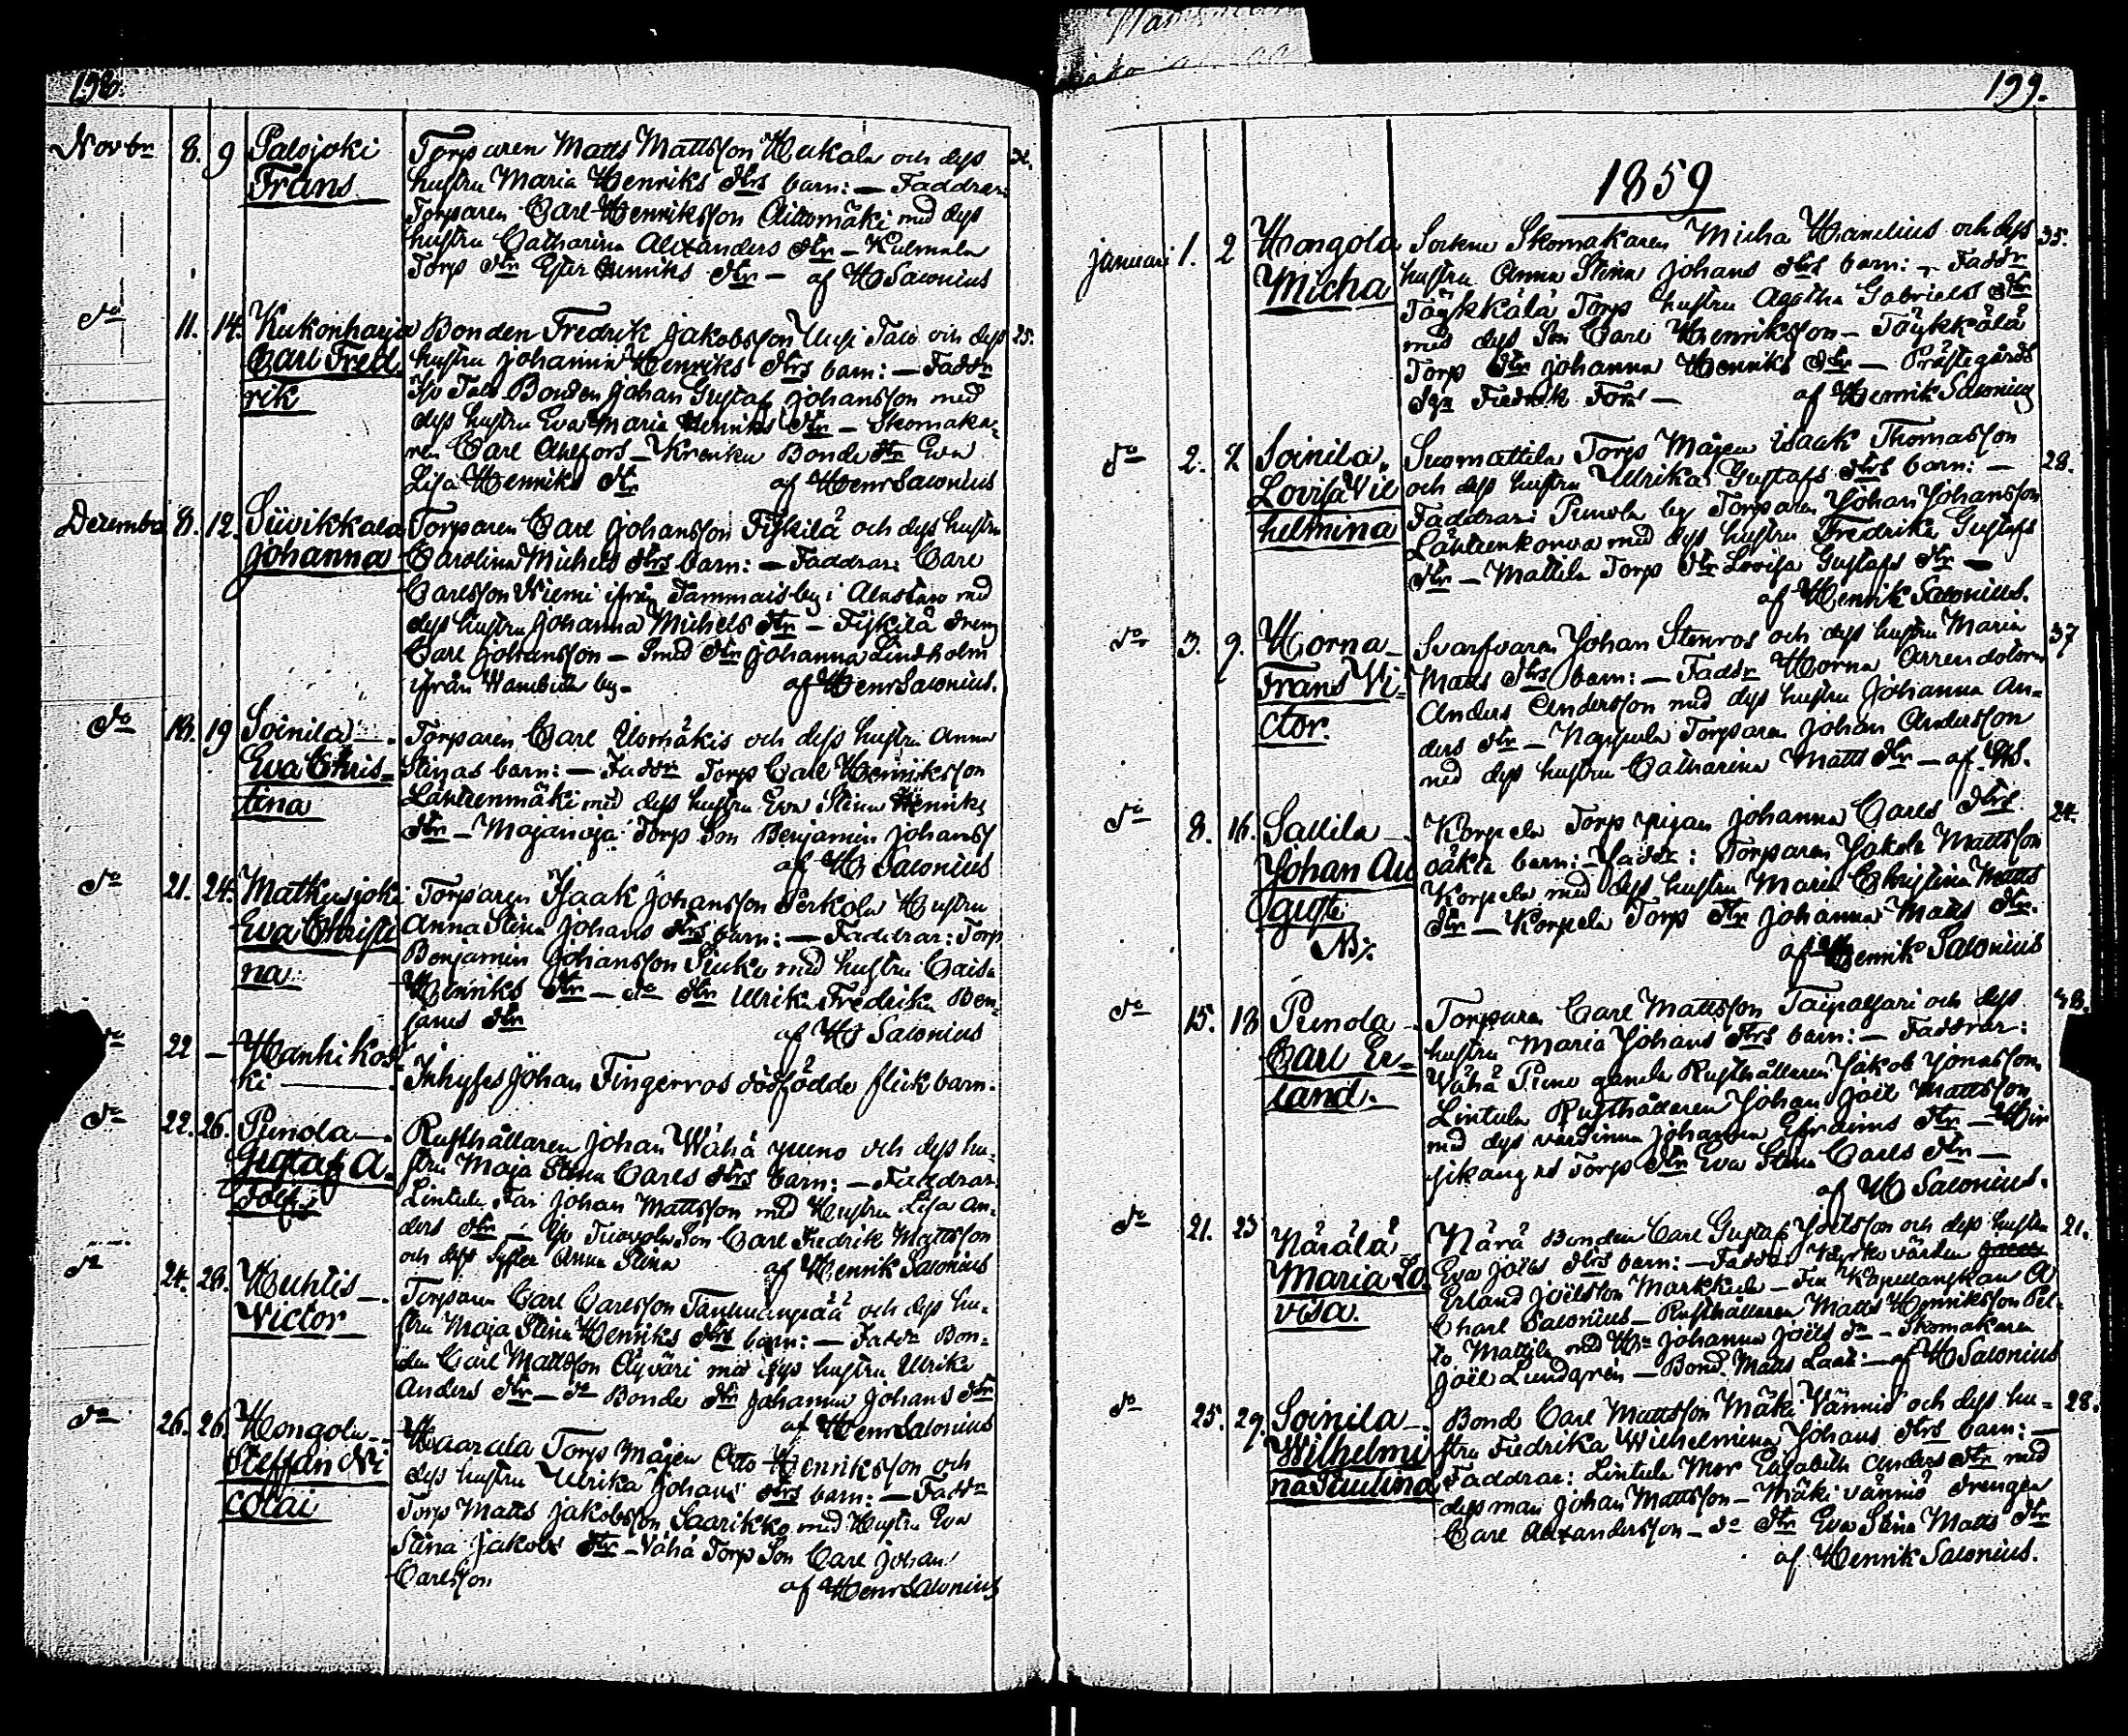 198.
Novbr 8. 9 Palojoki Torparen Matts Mattsson Heikola och dess
Frans hustru Maria Henriks dtrs barn: — Faddrar:
Torparen Carl Henriksson Aittomäki med dess
hustru Catharina Alexanders dtr — Kulmala
Torp dtr Ester Henriks dtr — af H Salonius
do 11. 14. Kukonharja Bonden Fredrik Jakobsson Uusi Talo och dess 25.
Carl Fred hustru Johanna Henriks dtrs barn: — Faddr
rik Iso Talo Bonden Johan Gustaf Johansson med
dess hustru Eva Maria Henriks dtr — Skomaka-
ren Carl Ahlfors — Krenku Bonde dtr Eva
Lisa Henriks dtr af Henr Salonius
December 8. 12. Siivikkala Torparen Carl Johansson Fiskilä och dess hustru
Johanna Carolina Michels dtrs barn: — Faddrar: Carl
Carlsson Niemi ifrån Tammais by i Alastaro med
dess hustru Johanna Michels dtr — Fiskilä dreng
Carl Johansson — Smed dtr Johanna Lindholm
ifrån Wambula by. af Henr Salonius.
do 18. 19 Soinila Torparen Carl Uomäkis och dess hustru Anna
Eva Chris- Stinas barn: — Faddr Torp Carl Henriksson
tina Lähteenmäki med dess hustru Eva Stina Henriks
dtr — Majanoja Torp Son Benjamin Johanss
af H Salonius
do 21. 24. Matkusjoki Torparen Isaak Johansson Perkola Hustru
Eva Christi Anna Stina Johans dtrs barn: — Faddrar: Torp
na. Benjamin Johansson Siuko med hustru Caisa
Henriks dtr — do dtr Ulrika Fredrika Ben-
jams dtr af H Salonius
do 22 — Hanhikos-
ki — Inhyses Johan Fingerroos dödfödde flickbarn.
do 22. 26. Punola — Rusthållaren Johan Wähä puno och dess hu-
Gustaf A- stru Maja Stina Carls dtrs barn: — Faddrar
dolf. Lintula Far Johan Mattsson med Hustru Lisa An-
ders dtr — Son Carl Fredrik Mattsson
och dess syster Anna Stina af Henrik Salonius
do 24. 28. Huhtis — Torparen Carl Carlsson Tanumanpää och dess hu-
Victor stru Maja Stina Henriks dtrs barn: — Faddr Bon-
den Carl Mattsson Äyväri med dess hustru Ulrika
Anders dtr — do Bonde dtr Johanna Johans dtr
af Henr Salonius
do 26. 26. Hongola — Haarala Torp Mågen Otto Henriksson och
Steffan Ni dess hustru Ulrika Johans dtrs barn: — Faddr
colai Torp Matts Jakobsson Saarikko med Hustru Eva
Stina Jakobs dtr — Vähä Torp Son Carl Johan
Carlsson af Henr Salonius
199.
1859
Januari 1. 2 Hongola Sockne Skomakaren Micha Hamelius och dess 35.
Micha hustru Anna Stina Johans dtrs barn: — Faddr
Täykkälä Torp hustru Agatha Gabriels dtr
med dess Son Carl Henriksson — Täykkälä
Torp dtr Johanna Henriks dtr — Prästegårds
Fredrik Fors — af Henrik Salonius
do 2. Soinila. Suomattila Torp Mågen Isaak Thomasson 28.
Lovisa Vil och dess hustru Ulrika Gustafs dtrs barn: —
helmina Faddrar: Punola by Torparen Johan Johansson
Lähteenkorva med dess hustru Fredrika Gustafs
dtr — Mattila Torp dtr Lovisa Gustafs dtr —
af Henrik Salonius.
do 3. 9. Horna — Svarfvaren Johan Stenros och dess hustru Maria 37
Frans Vi- Matts dtrs barn: — Faddr Horna Arrendatorn
ctor. Anders Andersson med dess hustru Johanna An-
ders dtr — Nappula Torparen Johan Andersson
med dess hustru Catharina Matts dtr — af HS.
do 8. 16. Sallila — Korpela Torp pigan Johanna Carls dtrs 24.
Johan Au oäkta barn: — Faddr: Torparen Jakob Mattsson
gust. Korpela med dess hustru Maria Christina Matts
N: dtr — Korpela Torp dtr Johanna Matts dtr.
af Henrik Salonius
do 15. 18 Punola — Torparen Carl Mattsson Taipalsari och dess 38.
Carl Er- hustru Maria Johans dtrs barn: — Faddrar:
land. Wähä Puno gamla Rusthållaren Jakob Jonasson,
Lintula Rusthållaren Johan Joël Mattsson
med dess värdinna Johanna Efraims dtr — Hir
sikangas Torp dtr Eva Stina Carls dtr —
af H Salonius.
do 21. 23 Närälä Närä Bonden Carl Gustaf Joelsson och dess hustru 21.
Maria Lo- Eva Joëls dtrs barn: — Faddr: Kyrko värden
visa. Erland Joelsson Markkula — Fru Kapellanskan A
Charl Salonius — Rusthållaren Matts Henriksson Pel-
to Mattila med Hu Johanna Joëls dr — Skomakaren
Joël Lundgrén — Bond. Matts Laati — af H Salonius
do 25. 29. Soinila — Bond Carl Mattsson Mäki Vänniö och dess hu- 28.
Wilhelmi stru Fredrika Wilhelmina Johans dtrs barn: —
na Paulina Faddrar: Lintula Mor Elisabeth Anders dtr med
dess man Johan Mattsson — Mäki vänniö drengen
Carl Alexandersson — do dtr Eva Stina Matts dtr
af Henrik Salonius.